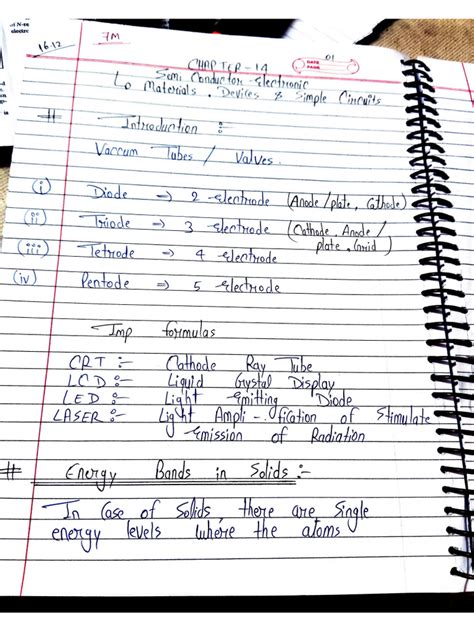 of N-ty
electro
16.12
7M
DATE
PAGE
01
CHAPTER-14
Semi Conductor Electronic
Materials, Devices & Simple Circuits
# Introduction :-
Vaccum Tubes / Valves.
(i) Diode → 2 electrode (Anode/plate, Cathode)
(ii) Triode → 3 electrode (Cathode, Anode/
plate, Grid)
(iii) Tetrode → 4 electrode
(iv) Pentode → 5 electrode
Imp formulas
CRT :- Cathode Ray Tube
LCD :- Liquid Crystal Display
LED :- Light Emitting Diode
LASER :- Light Ampli-fication of Stimulate
Emission of Radiation
# Energy Bands in Solids :-
In Case of Solids, there are Single
energy levels where the atoms